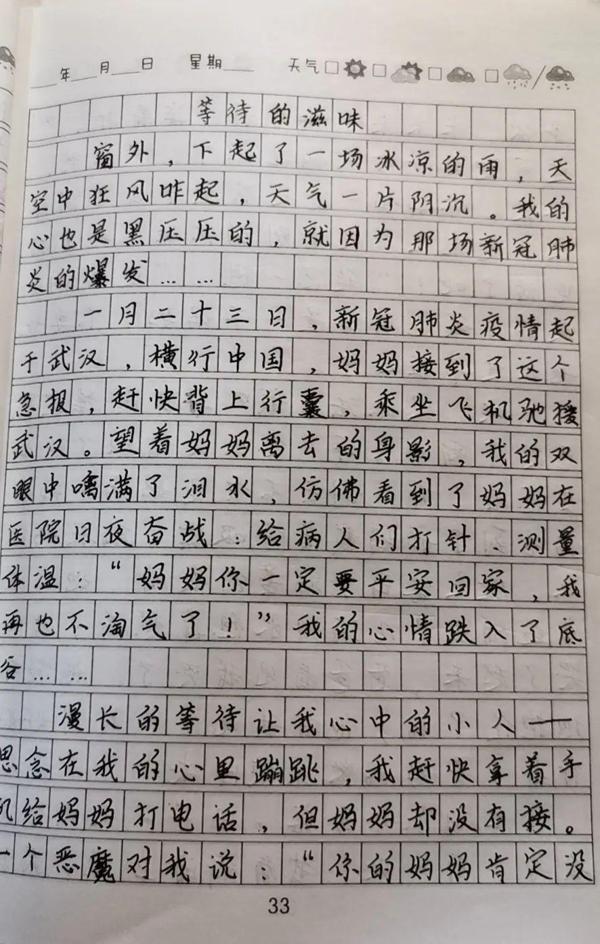 年 月 日 星期 天气
等待的滋味
窗外，下起了一场冰凉的雨，天
空中狂风咋起，天气一片阴沉。我的
心也是黑压压的，就因为那场新冠肺
炎的爆发……
一月二十三日，新冠肺炎疫情起
于武汉，横行中国，妈妈接到了这个
急报，赶快背上行囊，乘坐飞机驰援
武汉。望着妈妈离去的身影，我的双
眼中噙满了泪水，仿佛看到了妈妈在
医院日夜奋战：给病人们打针、测量
体温：“妈妈你一定要平安回家，我
再也不淘气了！”我的心情跌入了底
谷……
漫长的等待让我心中的小人——
思念在我的心里蹦跳，我赶快拿着手
机给妈妈打电话，但妈妈却没有接。
一个恶魔对我说：“你的妈妈肯定没
33